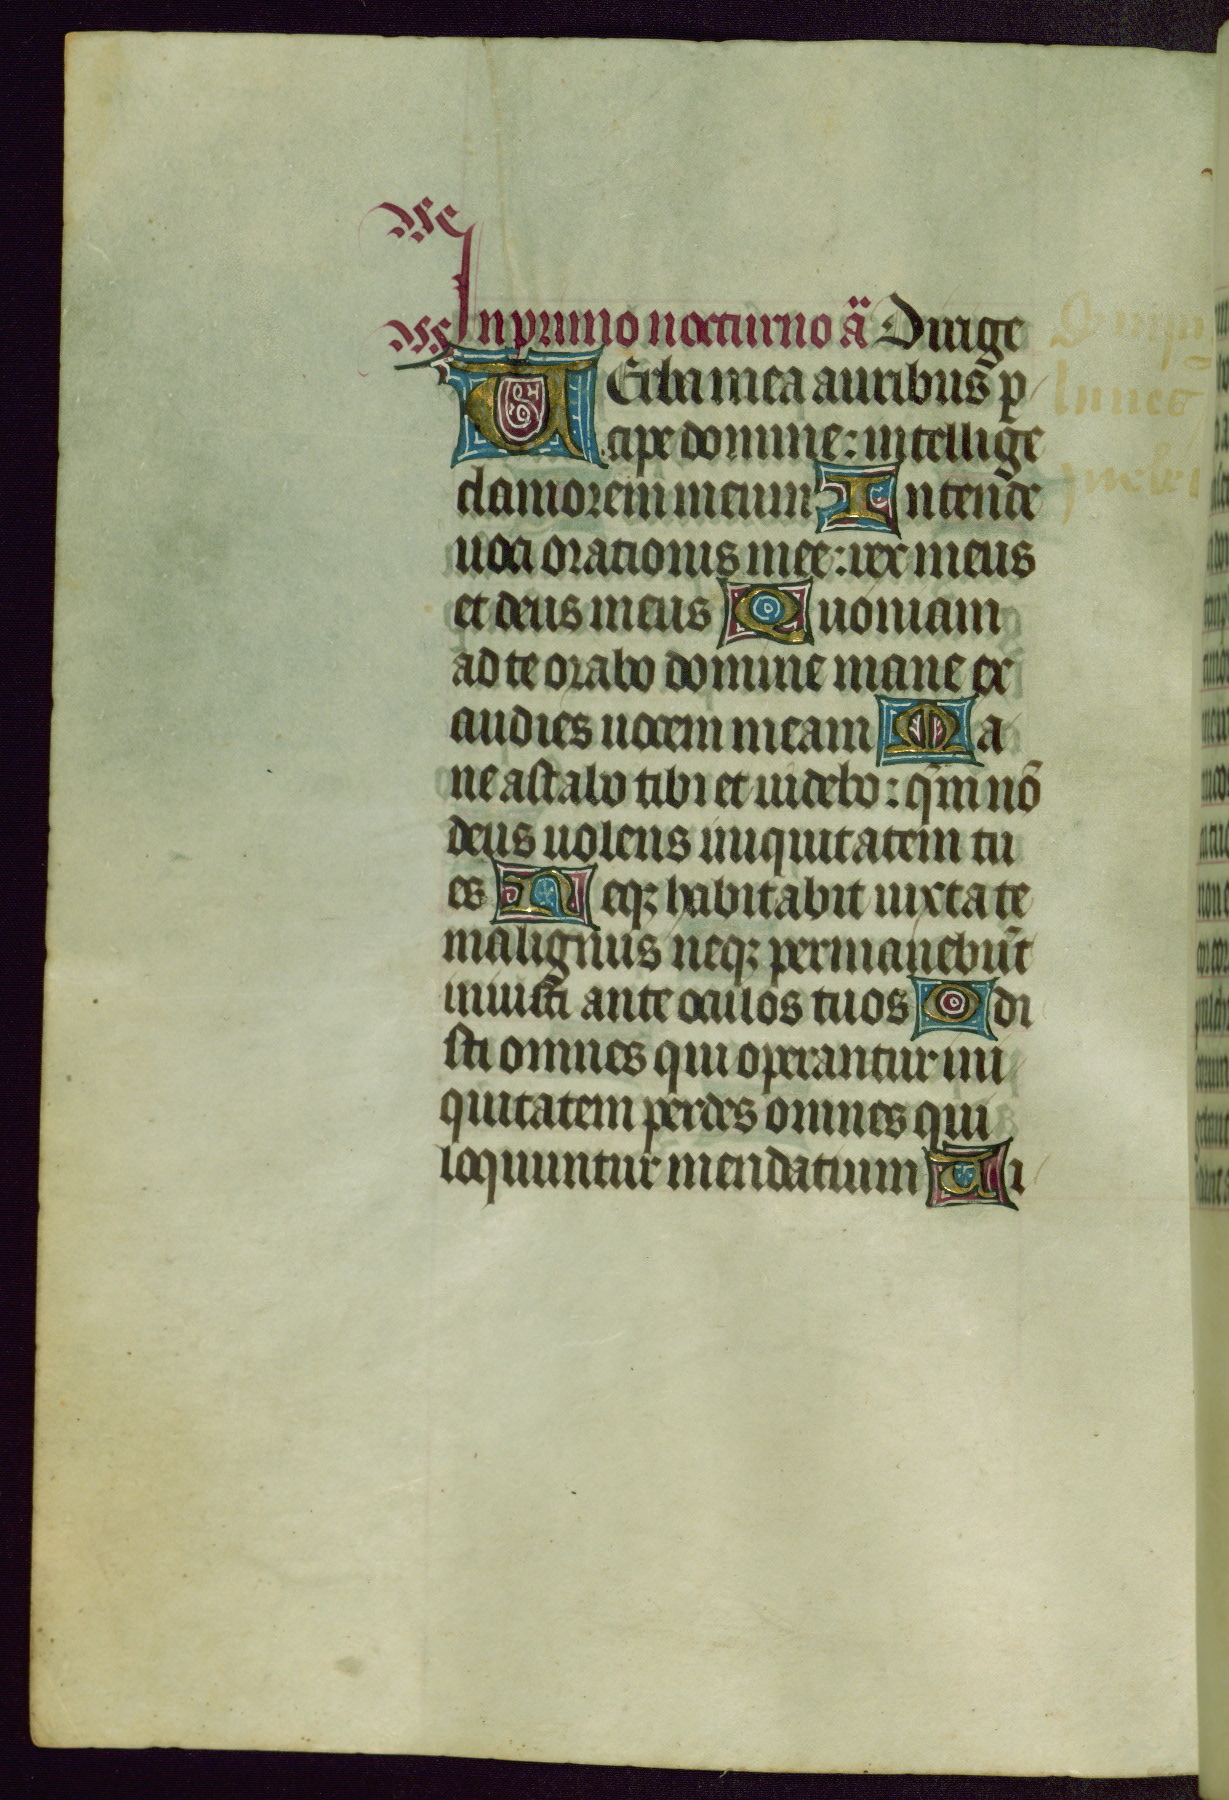 In primo nocturno ã Dirige
UErba mea auribus p̱
cipe domine: intellige
clamorem meum Intende
uoci orationis mee: rex meus
et deus meus Quoniam
ad te orabo domine mane ex
audies uocem meam Ma
ne astabo tibi et uidebo: qm̄ nō
deus uolens iniquitatem tu
es Neqꝫ habitabit iuxta te
malignus neqꝫ permanebūt
iniusti ante oculos tuos Odi
sti omnes qui operantur ini
quitatem perdes omnes qui
loquuntur mendatium Ui
lunes